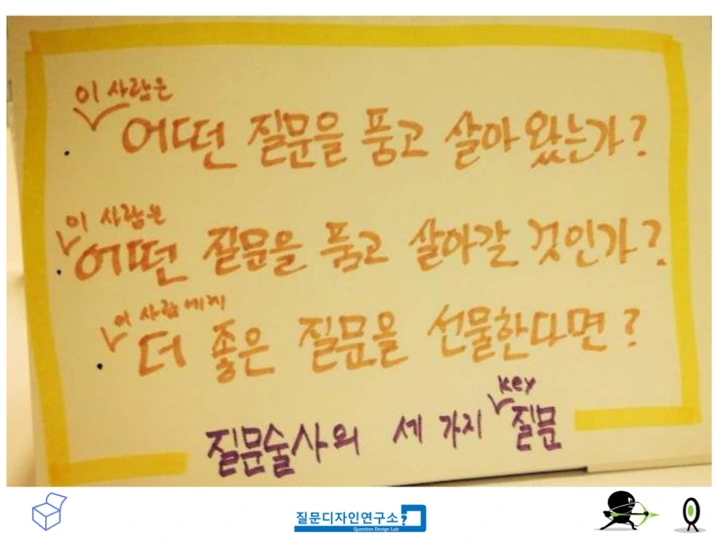 이 사람은
어떤 질문을 품고 살아왔는가?
이 사람은
어떤 질문을 품고 살아갈 것인가?
이 사람에게
더 좋은 질문을 선물한다면?
key
질문술사의 세 가지 질문
질문디자인연구소?
Question Design Lab